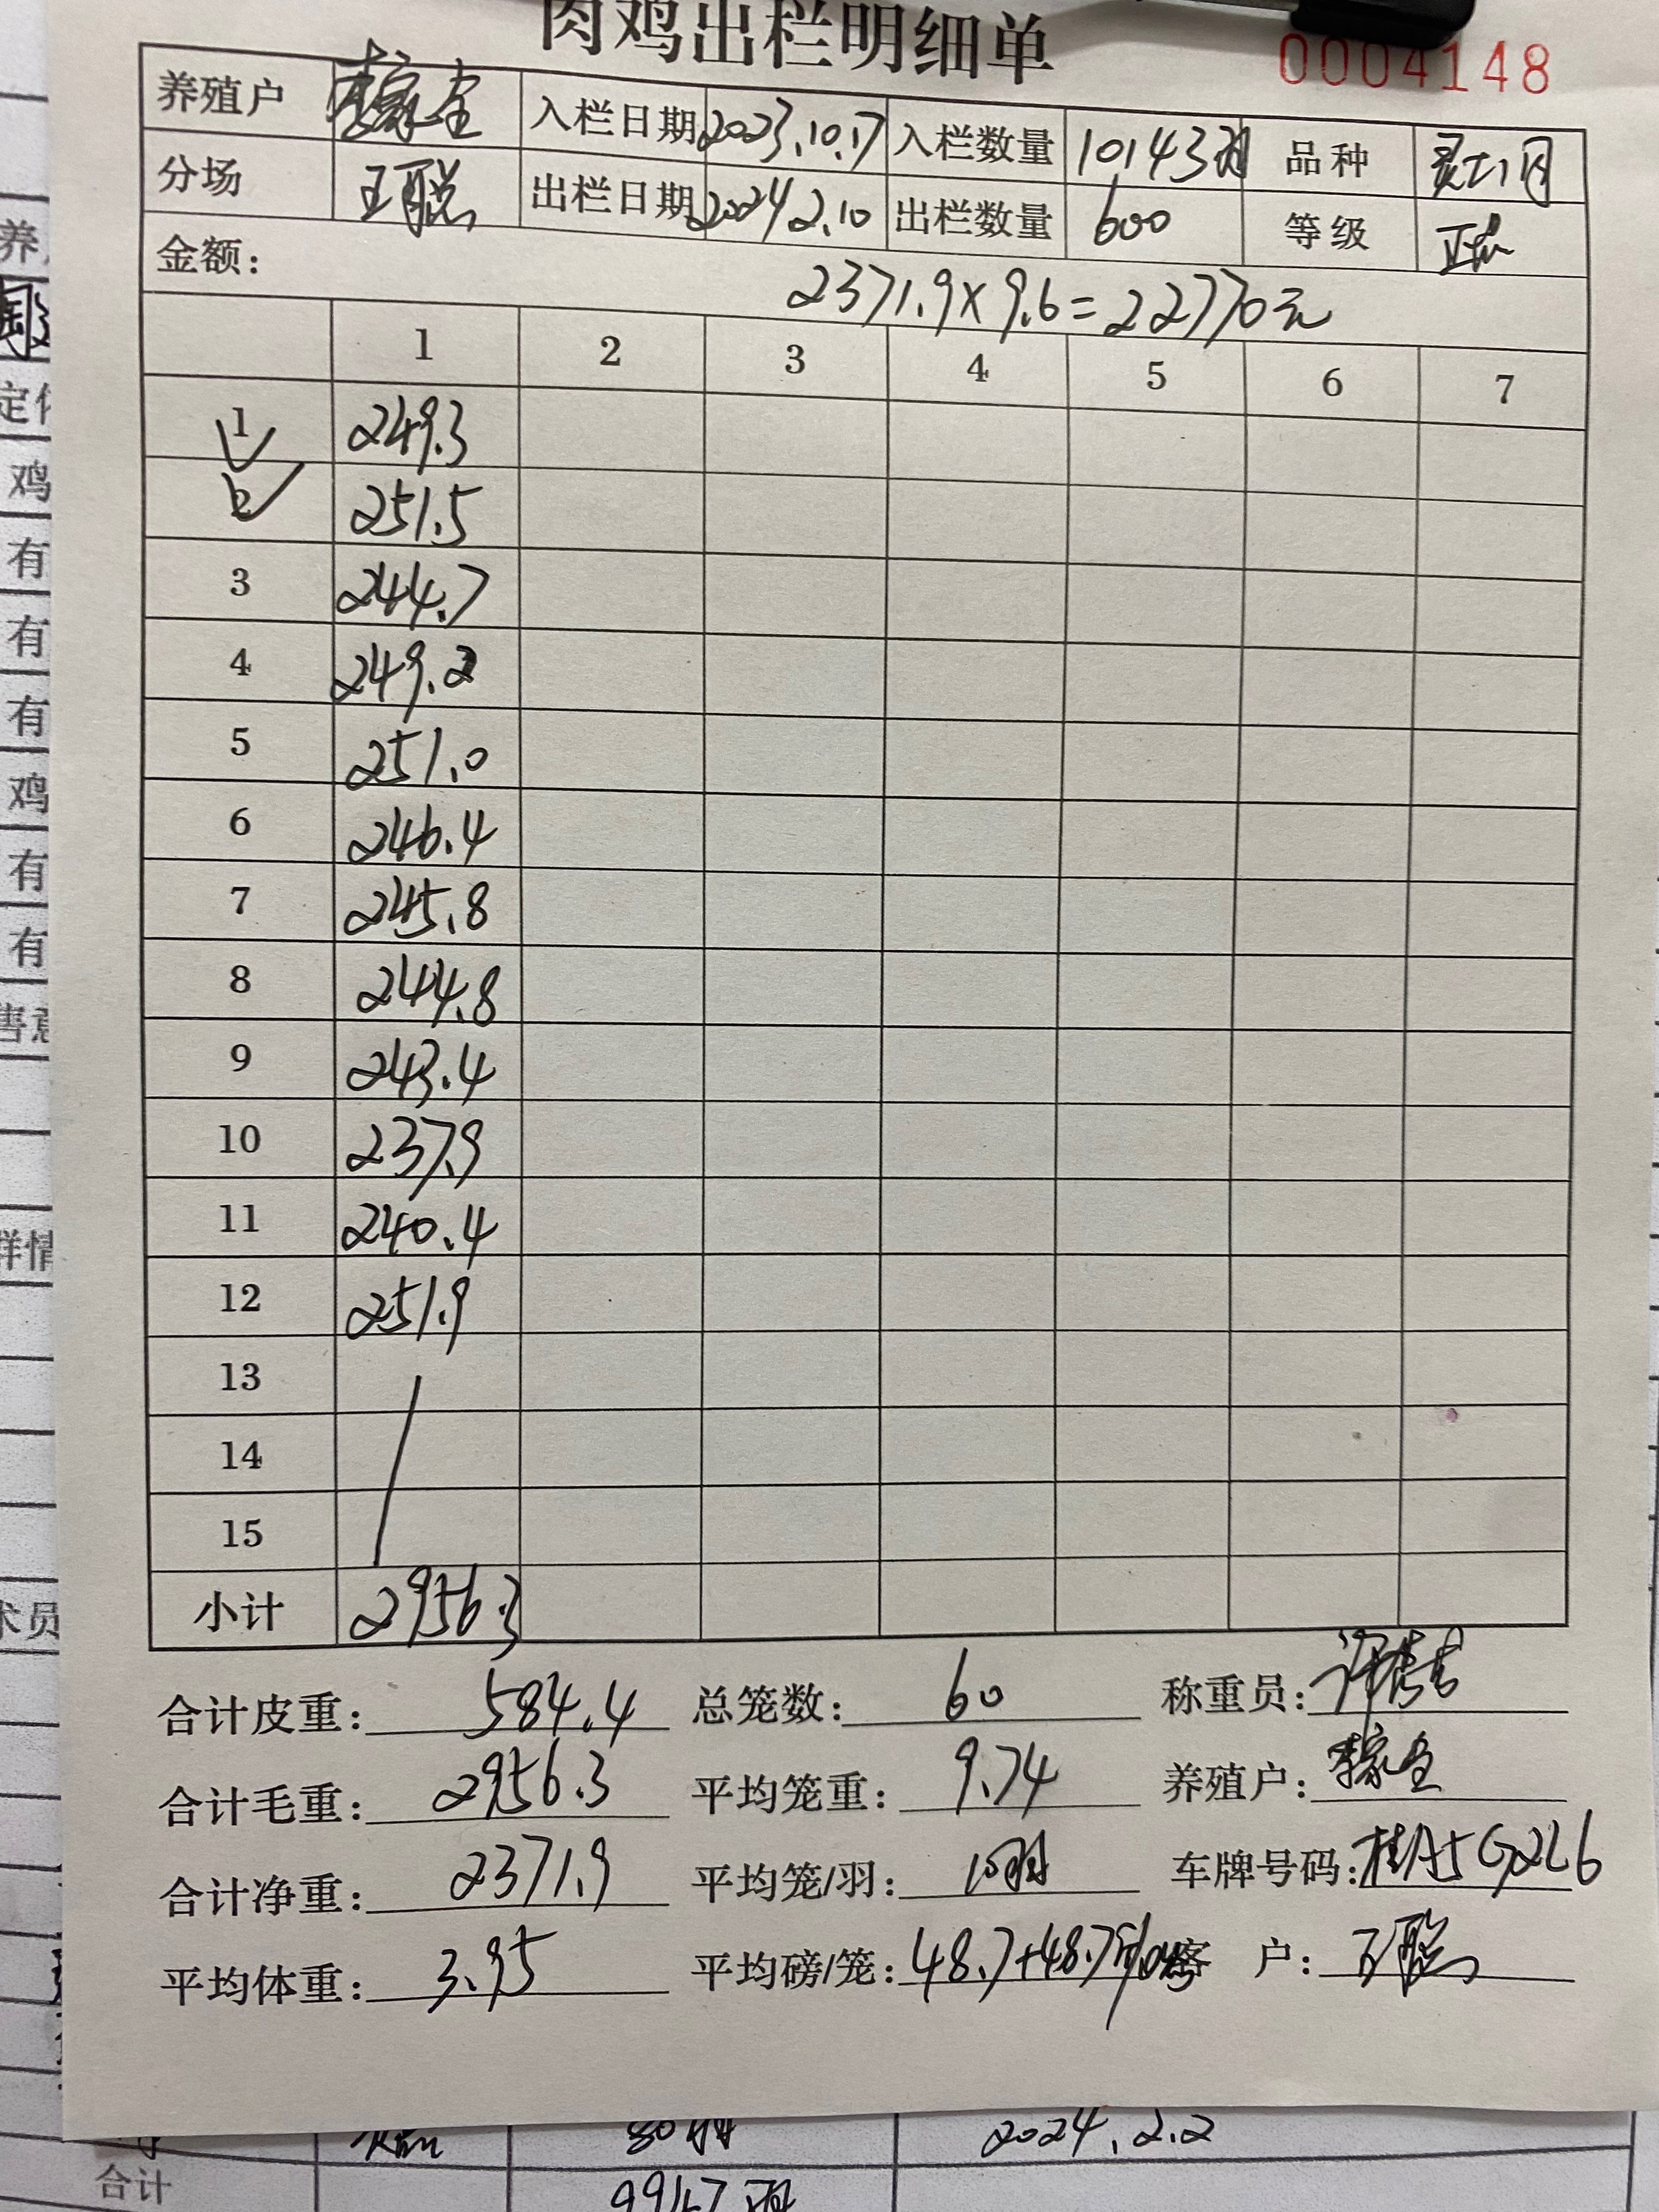 肉鸡出栏明细单
0004148
养殖户 入栏日期 2023.10.17 入栏数量 10143羽 品种 灵山
分场 王聪 出栏日期 2024 2.10 出栏数量 600 等级 正品
金额: 2371.9×9.6=22770元
1 2 3 4 5 6 7
1 249.3
2 251.5
3 244.7
4 249.2
5 251.0
6 246.4
7 245.8
8 244.8
9 243.4
10 237.9
11 240.4
12 251.9
13
14
15
小计 2956.3
合计皮重: 584.4 总笼数: 60 称重员:
合计毛重: 2956.3 平均笼重: 9.74 养殖户:
合计净重: 2371.9 平均笼/羽: 10羽 车牌号码: 桂A5G2L6
平均体重: 3.95 平均磅/笼: 48.7+48.7 客户: 王聪
80羽 2024.2.2
合计 9947羽
养
定
鸡
有
有
有
鸡
有
有
害意
群情
术员